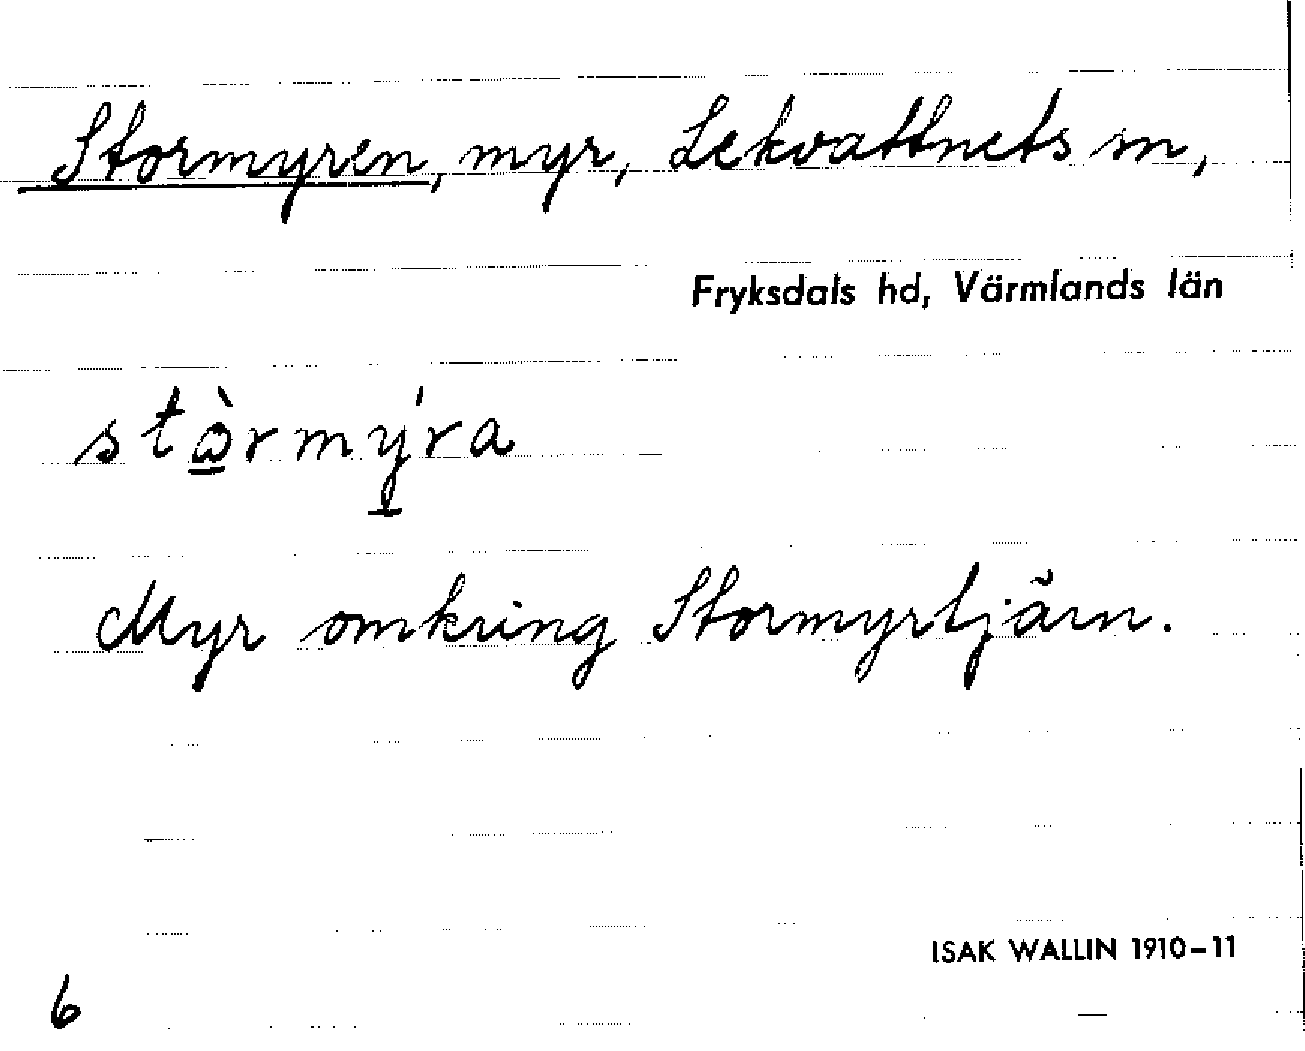 Stormyren, myr, Lekvattnets sn,
Fryksdals hd, Värmlands län
stòrmýra
Myr omkring Stormyrtjärn.
ISAK WALLIN 1910-11
6